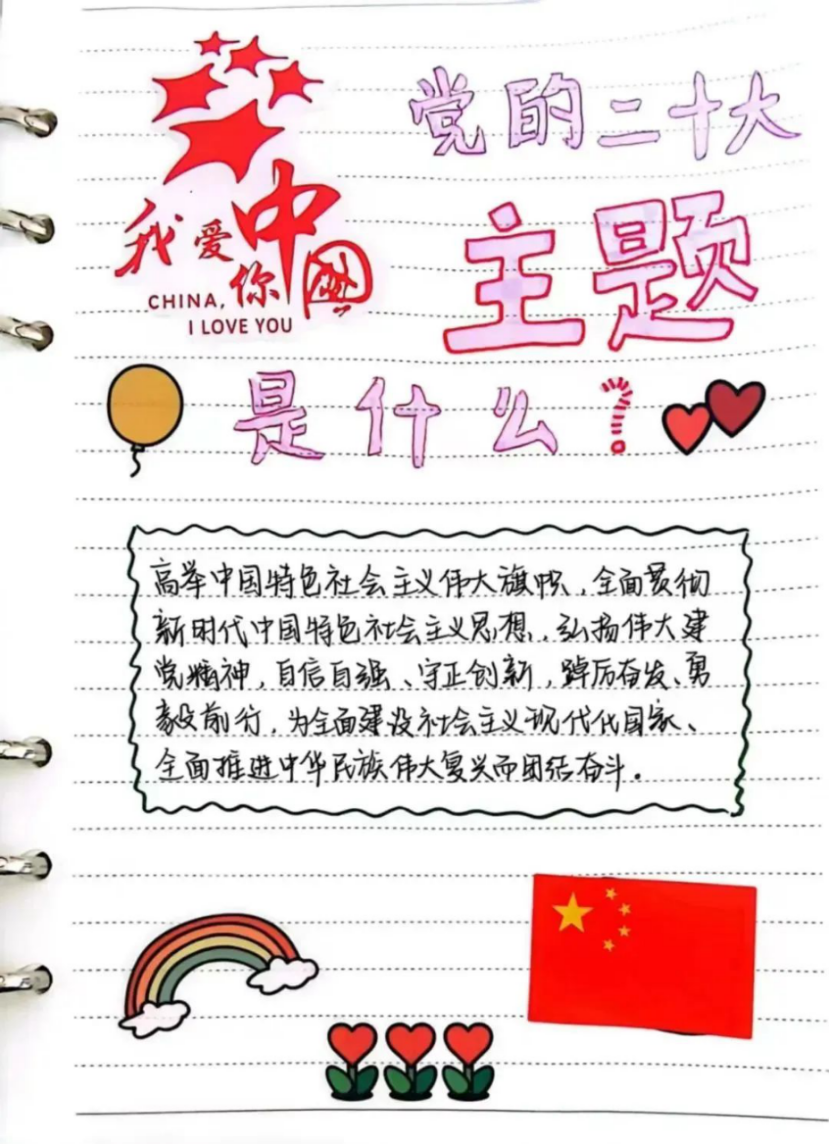 党的二十大
我爱你中國
CHINA,
I LOVE YOU
主题
是什么?
高举中国特色社会主义伟大旗帜,全面贯彻
新时代中国特色社会主义思想,弘扬伟大建
党精神,自信自强、守正创新,踔厉奋发、勇
毅前行,为全面建设社会主义现代代国家、
全面推进中华民族伟大复兴而团结奋斗。